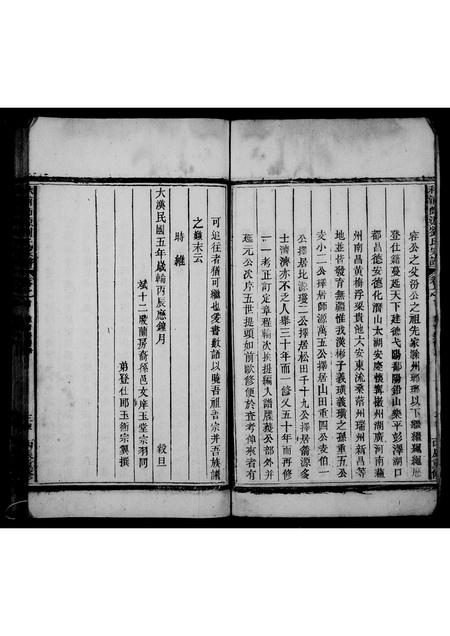 容公之父汾公之祖先家滁州瑯琊以下繼繼繩繩歷
登仕籍蔓延天下建德弋陽鄱陽鉛山樂平彭澤湖口
都昌德安德化潛山太湖安慶懷寧
州南昌黃梅浮梁貴池大安東流藥瑞州新昌等
地並皆發育無疆惟我漢彬子義璜義璜之孫重五公
支小二公擇居師源萬五公擇居山田重四公麦伯一
公擇居比源瓊二公擇居松田千十九公擇居翁源多
士濟濟亦不乏人舉三十年而一修又五十年而再修
一一考正訂定章程輪次挨提編入譜崖公部外并
延元公次序五世提頭如前歐修便於查考俾來者有
可追往者猶可繼也爰書數語以曉吾祖吾宗并吾族譜
之末云
時維
大漢民國五年歲輪丙辰應鐘月 穀旦
斌十二廈蘭房裔徑邑文庠玉堂宗羽同
弟登仕郎玉衡宗製撰